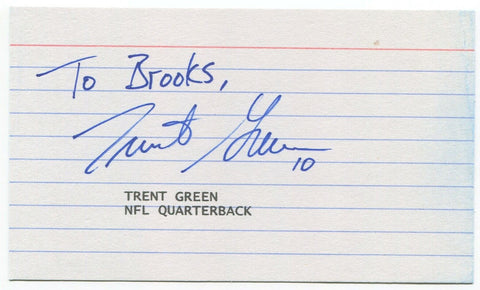 To Brooks,
Trent Green
10
TRENT GREEN
NFL QUARTERBACK